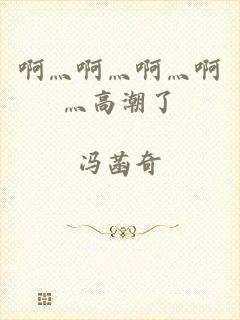 啊灬啊灬啊灬啊
灬高潮了
冯菡奇